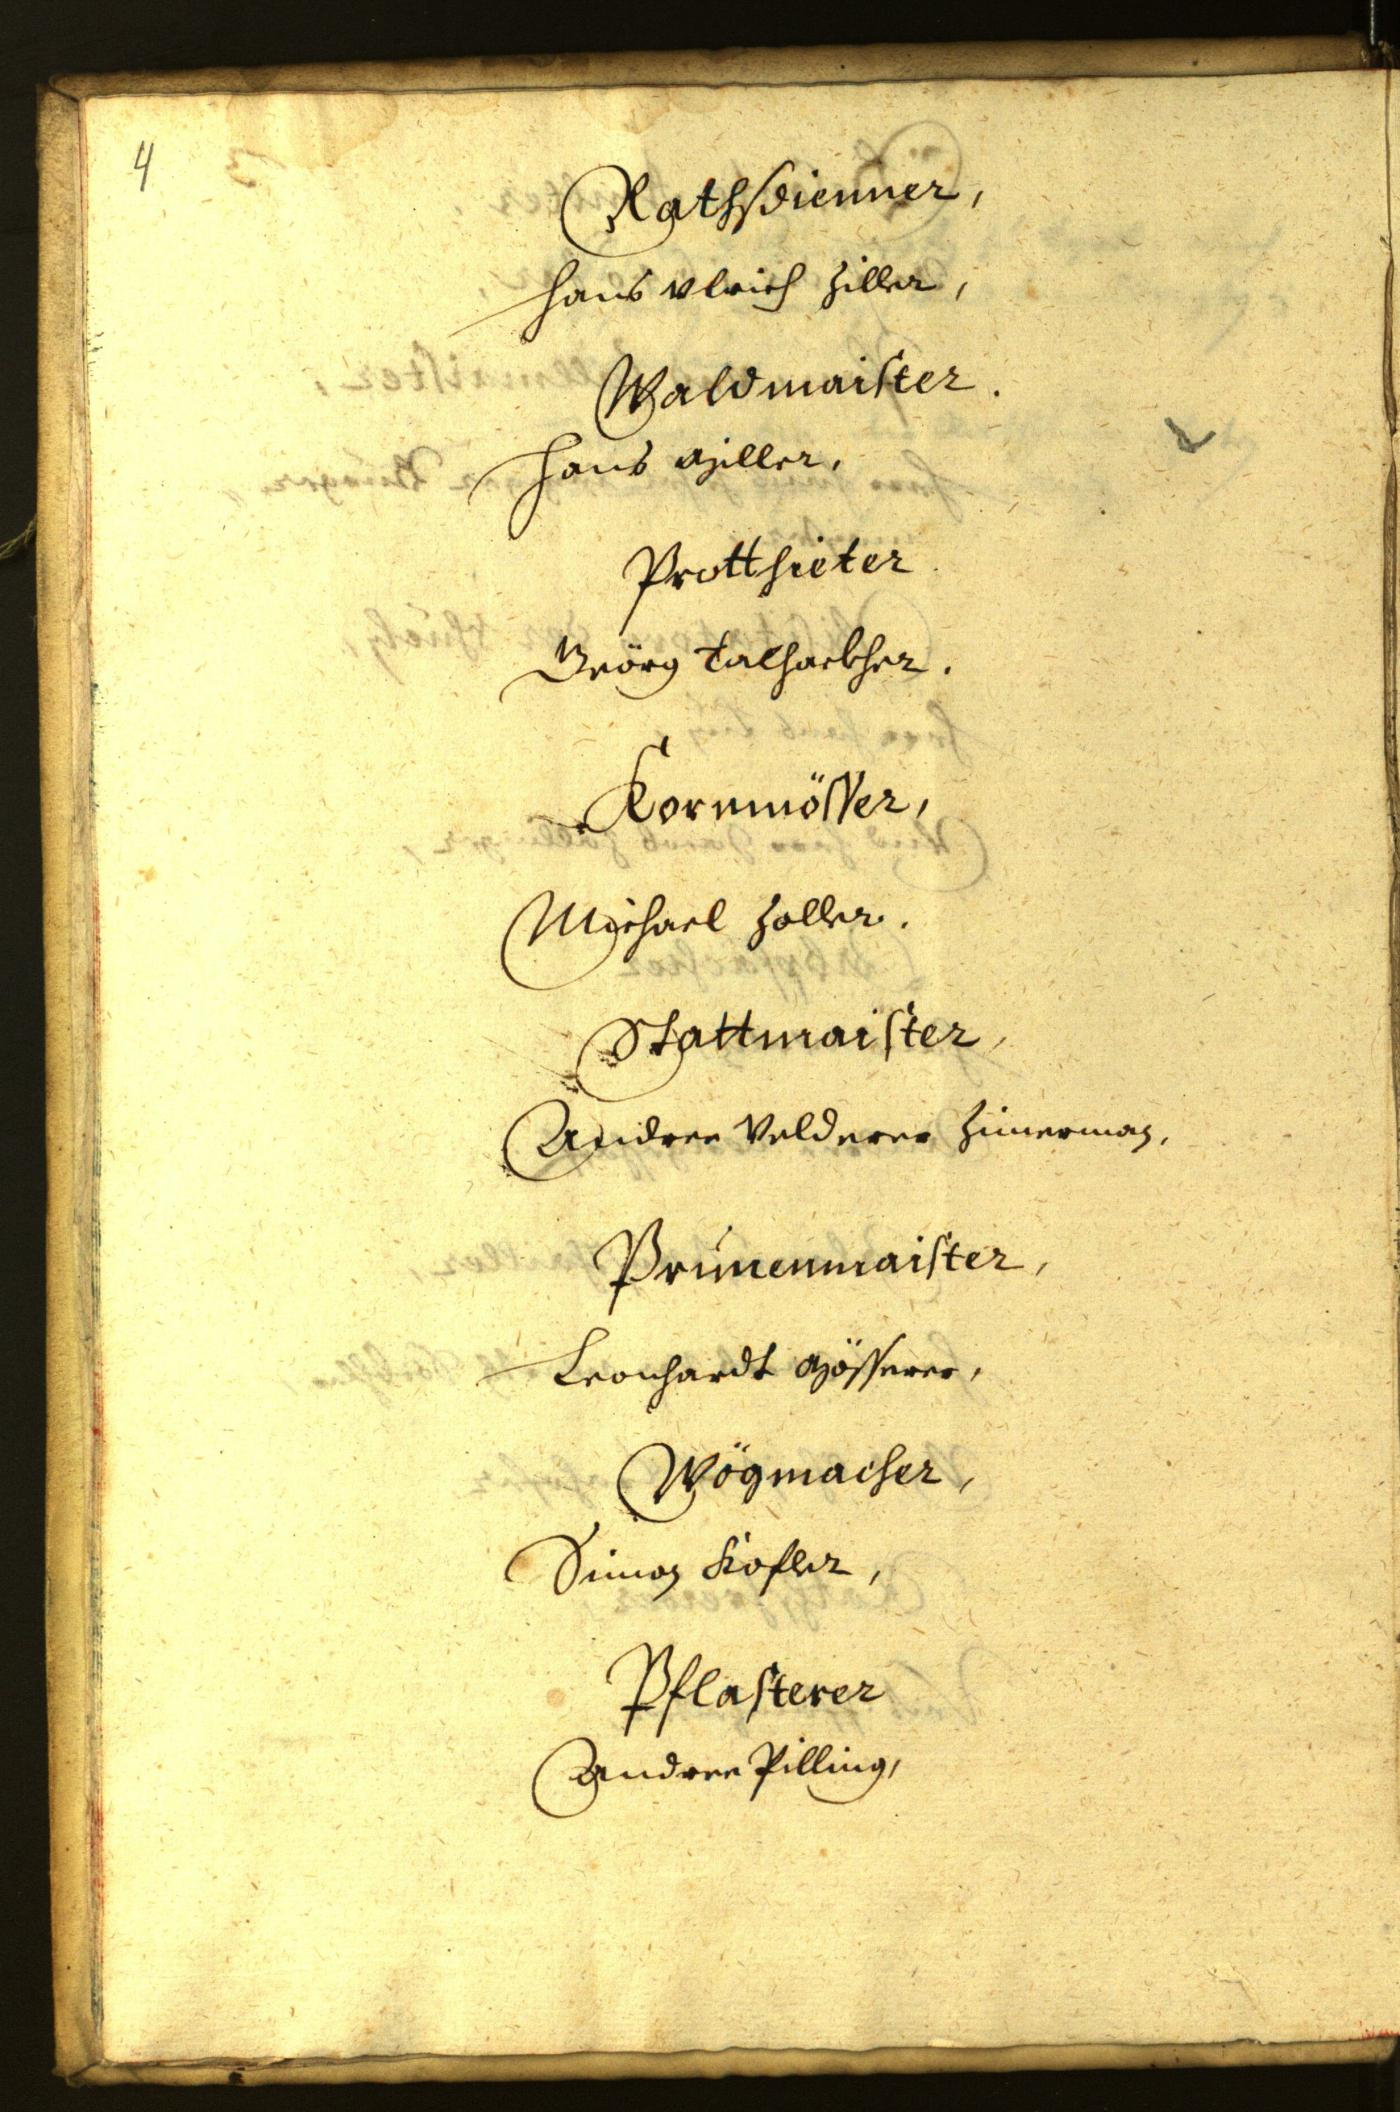 4
Rathsdienner,
Hanns Vlrich Ziller,
Waldmaister.
Hanns Miller,
Protthieter
Geörg Talhackher.
Kornmösser,
Michael Zoller.
Stattmaister,
Andree Velderer Zimerman,
Prunenmaister,
Leonhardt Mösserer,
Wögmacher,
Simon Kofler,
Pflasterer
Andree Pilling,